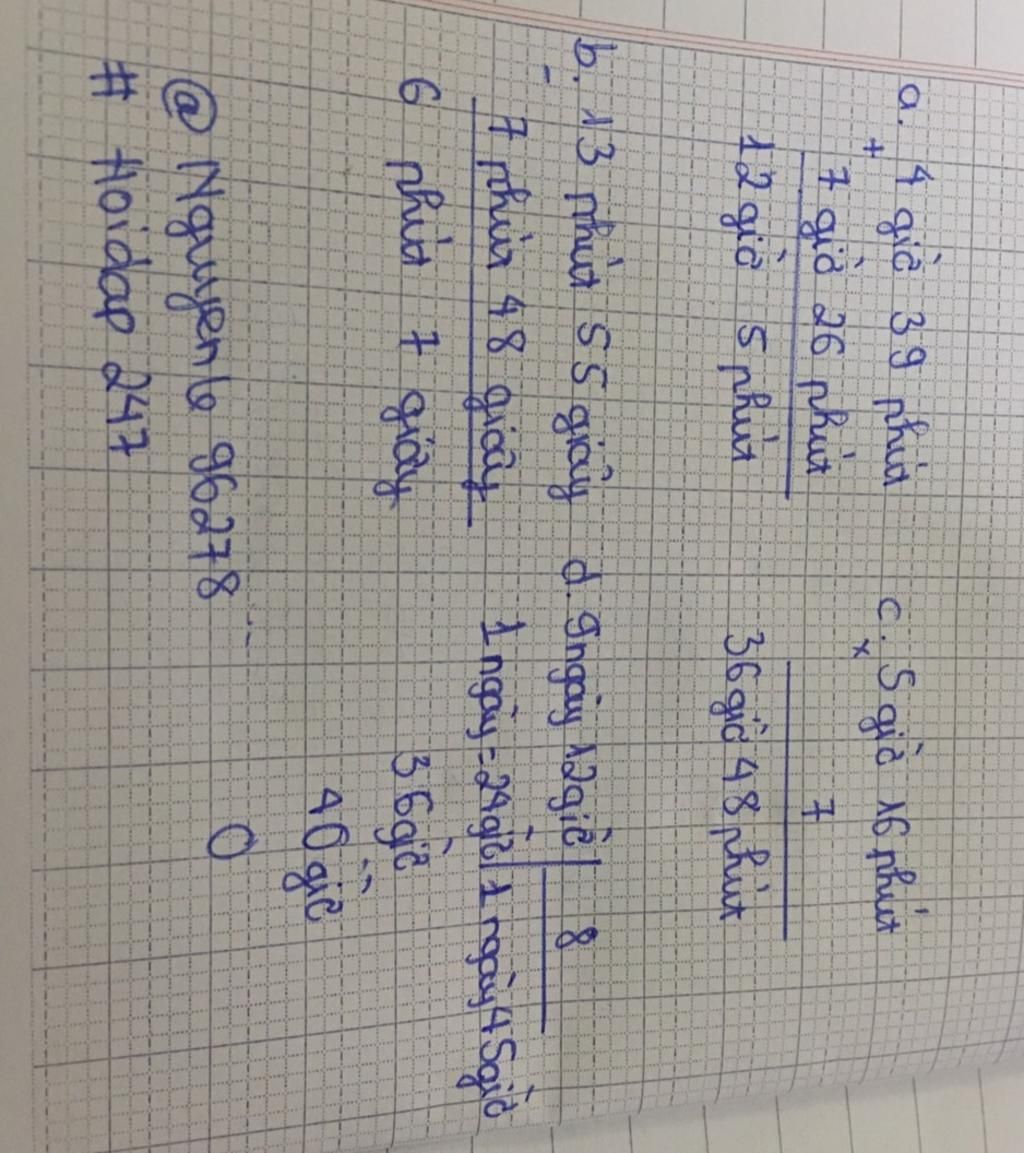 a. 4 giờ 39 phút
+
7 giờ 26 phút
12 giờ 5 phút
b. 13 phút 55 giây
-
7 phút 48 giây
6 phút 7 giây
c. 5 giờ 16 phút
x
7
36 giờ 48 phút
d. 9 ngày 12 giờ | 8
1 ngày = 24 giờ | 1 ngày 4,5 giờ
36 giờ
40 giờ
0
@ Nguyenle 96278
# Hoidap 247